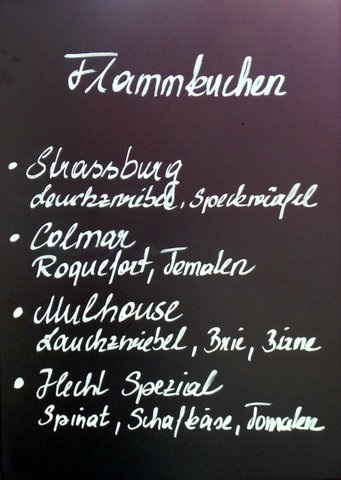 Flammkuchen
• Strassburg
Lauchzwiebel, Speckwürfel
• Colmar
Roquefort, Tomaten
• Mulhouse
Lauchzwiebel, Brie, Birne
• Hecht Spezial
Spinat, Schafkäse, Tomaten